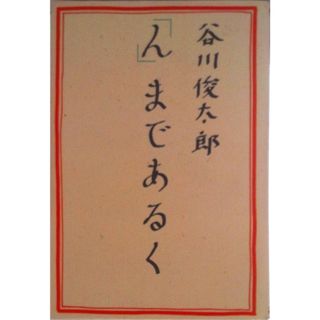 谷川俊太郎
「ん」まであるく